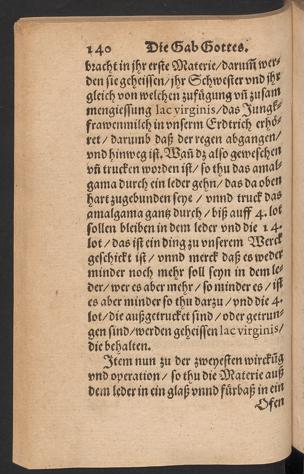 140 Die Gab Gottes.
bracht in jhr erste Materie/darum̃ wer-
den sie geheissen/jhr Schwester vnd jhr
gleich von welchen zufügung vñ zusam
mengiessung lac virginis/das Jungk-
frawenmilch in vnserm Erdtrich erhö-
ret/darumb daß der regen abgangen/
vnd hinweg ist. Wañ dz also geweschen
vñ trucken worden ist/so thu das amal-
gama durch ein leder gehn/das da oben
hart zugebunden seye/vnnd truck das
amalgama gans durch/biß auff 4. lot
sollen bleiben in dem leder vnd die 14.
lot/das ist ein ding zu vnserem Werck
geschickt ist/vnnd merck daß es weder
minder noch mehr soll seyn in dem le-
der/wer es aber mehr/so minder es/ist
es aber minder so thu darzu/vnd die 4.
lot/die außgetrucket sind/oder getrun-
gen sind/werden geheissen lac virginis/
die behalten.
Jtem nun zu der zweyesten wirckũg
vnd operation/so thu die Materie auß
dem leder in ein glaß vnnd fürbaß in ein
Ofen